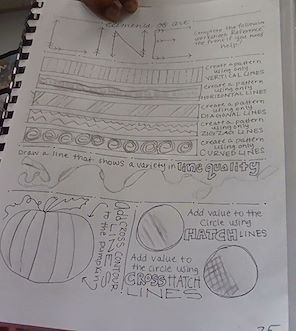 elements of art
LINE
Complete the following
worksheet. Reference
the front if you need
help!
Create a pattern
using only
VERTICAL LINES
Create a pattern
using only
HORIZONTAL LINES
Create a pattern
using only
DIAGONAL LINES
Create a pattern
using only
ZIGZAG LINES
Create a pattern
using only
CURVED LINES
Draw a line that shows a variety in line quality
Add CROSS CONTOUR
LINES
to the pumpkin
Add value to the
circle using
HATCH LINES
Add value to
the circle using
CROSS HATCH
LINES